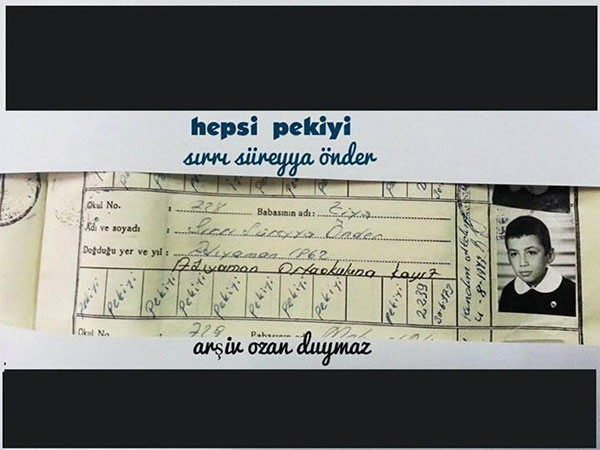 hepsi pekiyi
sırrı süreyya önder
Okul No. : 228 Babasının adı: Ziya
Adı ve soyadı : Sırrı Süreyya Önder
Doğduğu yer ve yıl : Adıyaman 1962
Adıyaman Ortaokuluna kayıt
pekiyi pekiyi pekiyi pekiyi pekiyi pekiyi pekiyi pekiyi 2339
Okul No. 729 Babasının
arşiv ozan duymaz